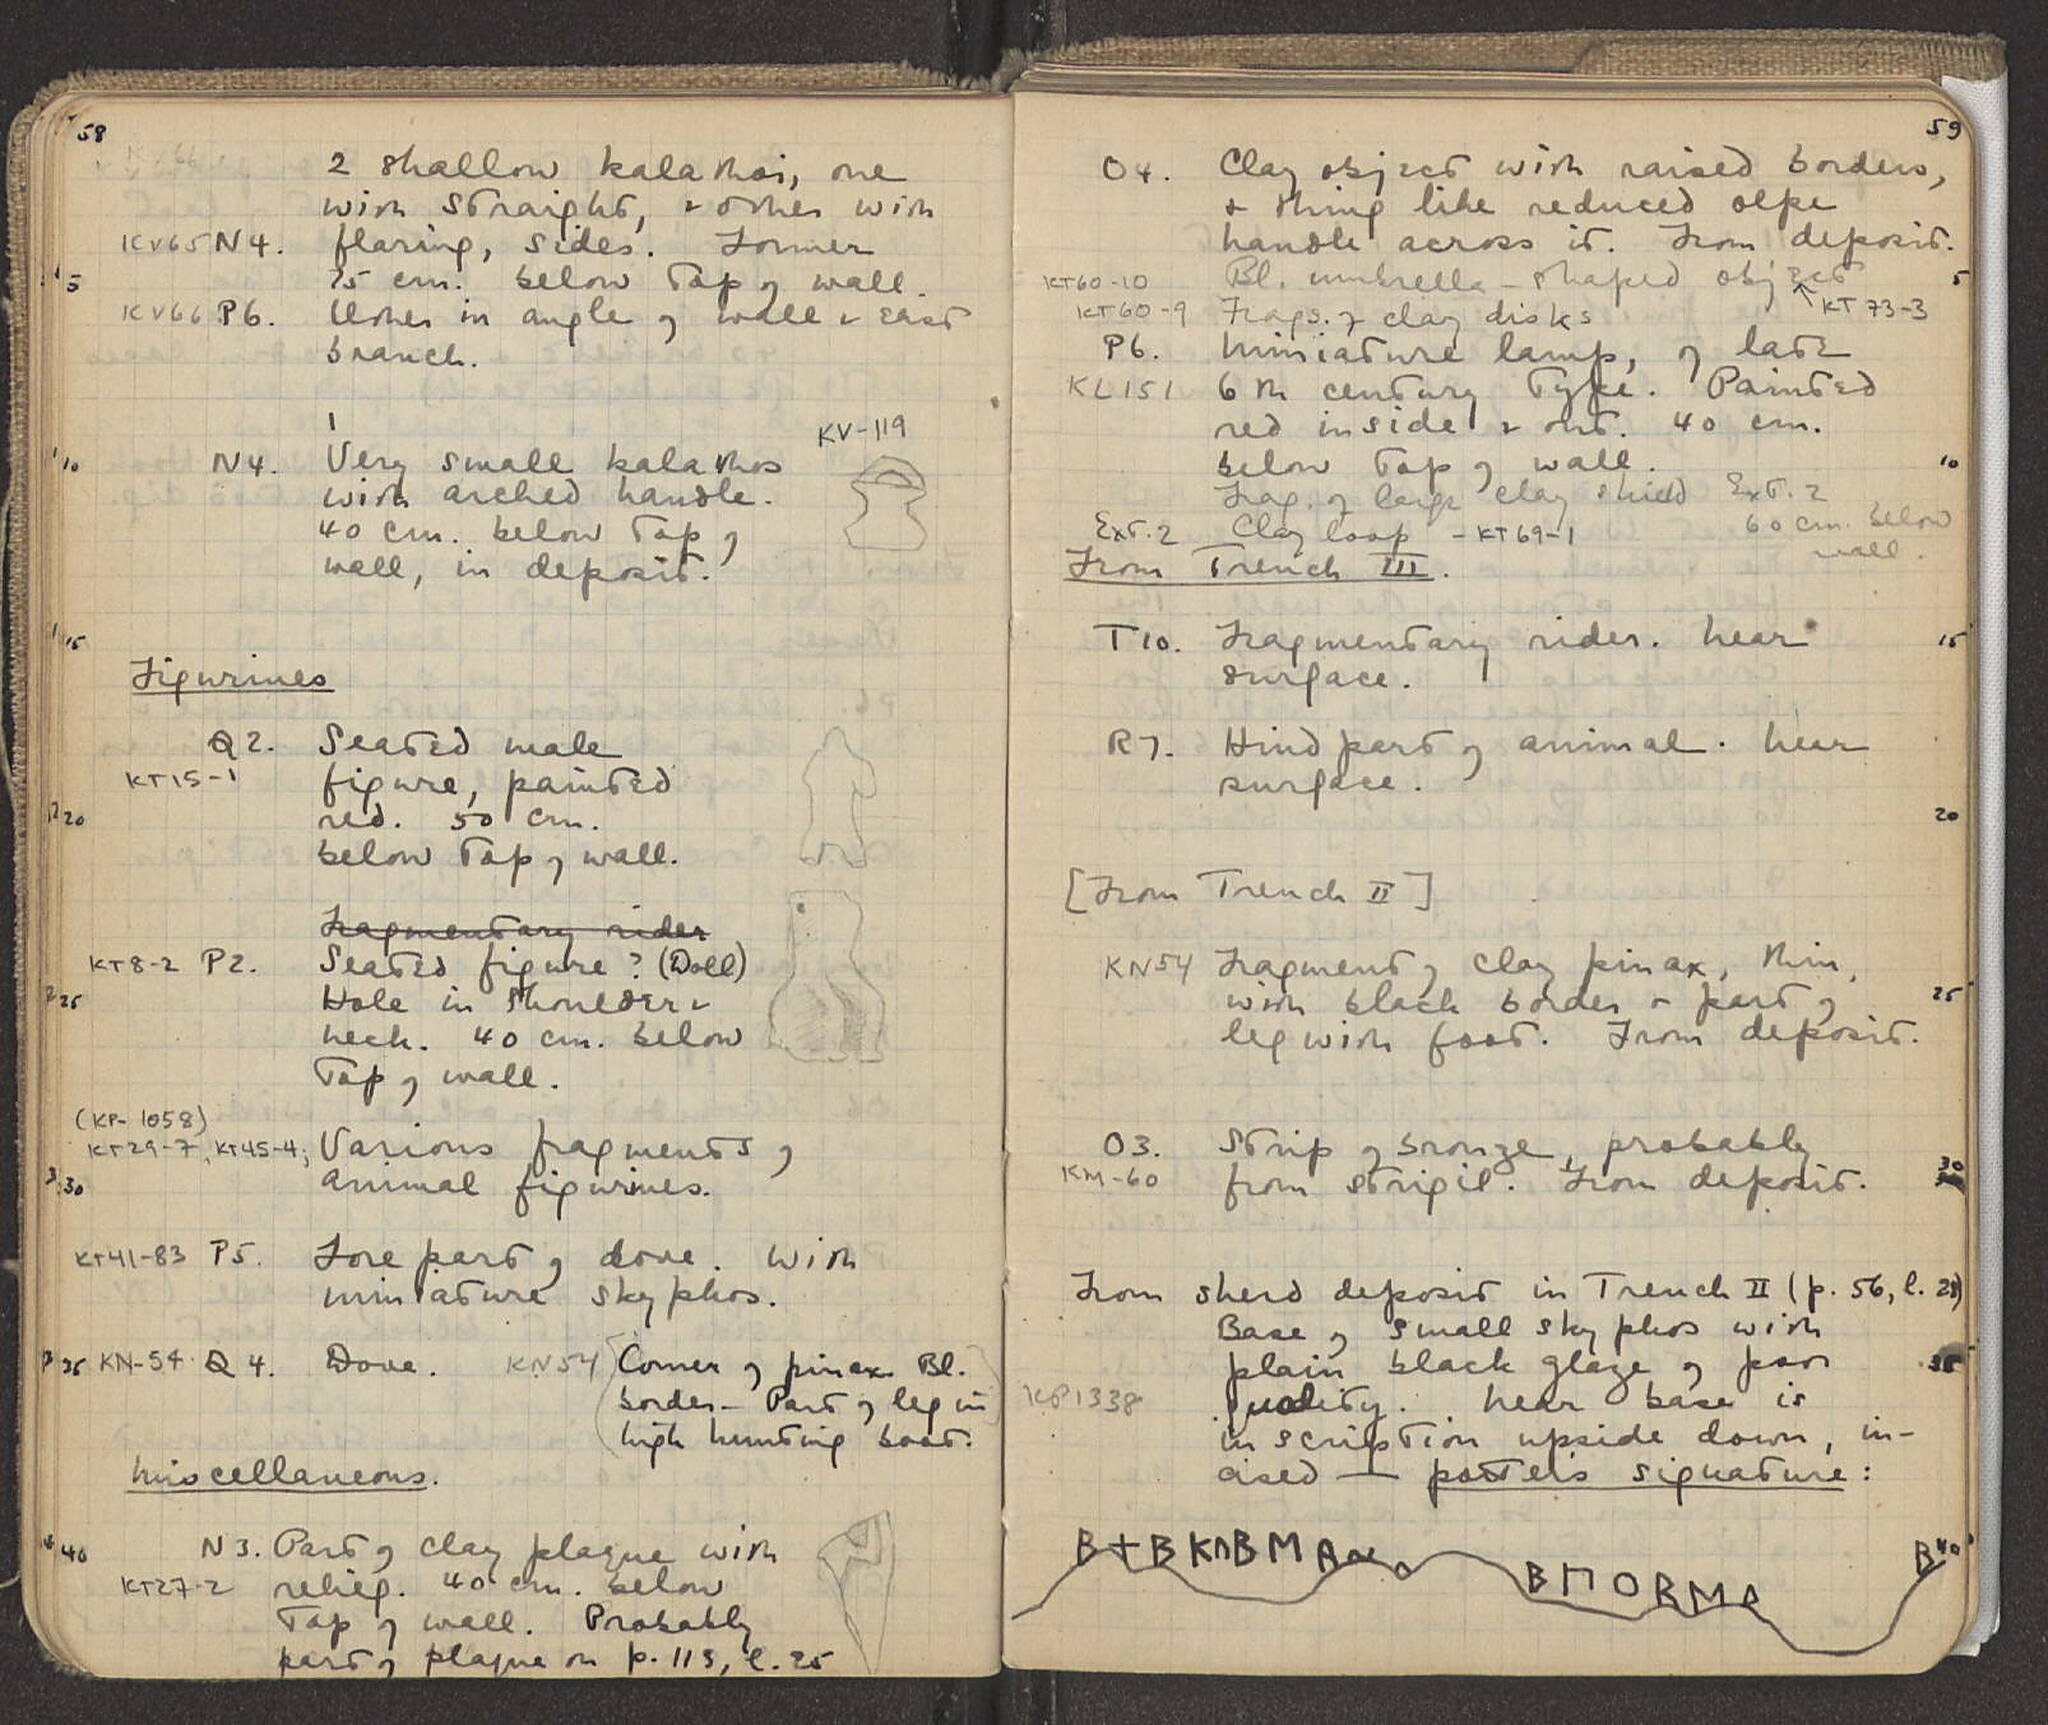 58
2 shallow kalathoi, one
with straight, & other with
KV65 N4. flaring, sides. Former
5 75 cm. below top of wall.
KV66 P6. Other in angle of wall & East
branch.
1
KV-119
10 N4. Very small kalathos
with arched handle.
40 cm. below top of
wall, in deposit.
15
Figurines
Q2. Seated male
KT15-1 figure, painted
20 red. 50 cm.
below top of wall.
Fragmentary rider
KT8-2 P2. Seated figure? (Doll)
25 Hole in shoulder &
neck. 40 cm. below
top of wall.
(KP-1058)
KT29-7, KT45-4; Various fragments of
30 animal figurines.
KT41-83 P5. Forepart of dove. With
miniature skyphos.
35 KN-54 Q4. Dove. KN54 (Corner of pinax Bl.
border - Part of leg in
high hunting boot.)
Miscellaneous.
40 N3. Part of clay plaque with
KT27-2 relief. 40 cm. below
top of wall. Probably
part of plaque on p. 113, l. 25
59
O4. Clay object with raised borders,
& thing like reduced olpe
handle across it. From deposit.
KT60-10 Bl. umbrella-shaped object 5
KT60-9 Frags. of clay disks KT73-3
P6. Miniature lamp, of late
KL151 6th century type. Painted
red inside & out. 40 cm.
below top of wall. 10
Frag. of large clay shield Ext. 2
60 cm. below
wall.
Ext. 2 Clay loop - KT69-1
From Trench III.
T10. Fragmentary rider. Near 15
surface.
R7. Hind part of animal. Near
surface.
20
[From Trench II]
KN54 Fragment of clay pinax, thin,
with black border & part of 25
leg with foot. From deposit.
O3. Strip of bronze, probably
KM-60 from strigil. From deposit. 30
From sherd deposit in Trench II (p. 56, l. 28)
Base of small skyphos with
plain black glaze of poor 35
KP1338 quality. Near base is
inscription upside down, in-
cised — potter's signature:
40